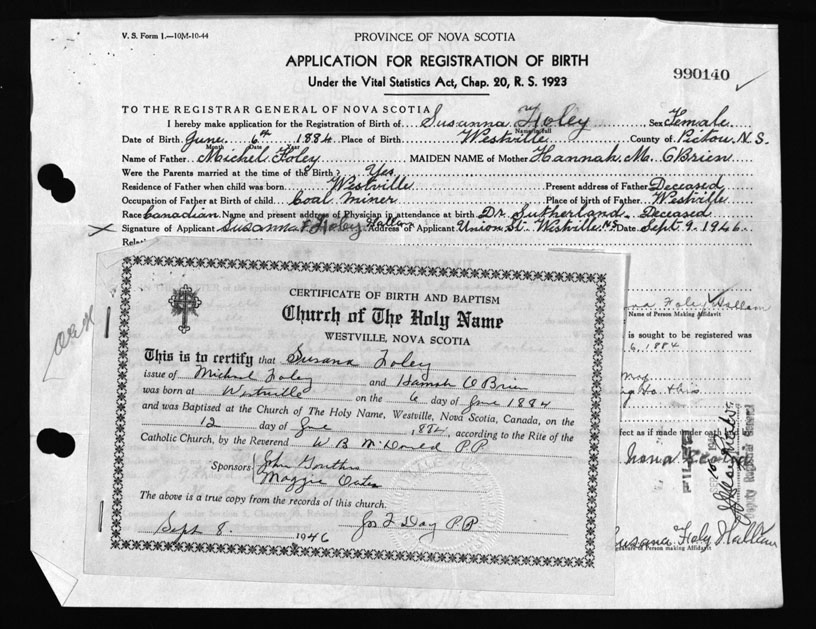 V. S. Form 1.—10M-10-44
PROVINCE OF NOVA SCOTIA
APPLICATION FOR REGISTRATION OF BIRTH
Under the Vital Statistics Act, Chap. 20, R. S. 1923
990140
TO THE REGISTRAR GENERAL OF NOVA SCOTIA
I hereby make application for the Registration of Birth of Susanna Foley Sex Female
Name in full
Date of Birth June 6th 1884 Place of Birth Westville County of Pictou, N.S.
Month Date Year
Name of Father Michel Foley MAIDEN NAME of Mother Hannah M. OBrien
Were the Parents married at time of the Birth? Yes
Residence of Father when child was born Westville Present address of Father Deceased
Occupation of Father at Birth of child Coal Miner Place of birth of Father Westville
Race Canadian Name and present address of Physician in attendance at birth Dr Sutherland. Deceased
Signature of Applicant Susanna F Foley Hallam Address of Applicant Union St. Westville NS Date Sept 9. 1946
CERTIFICATE OF BIRTH AND BAPTISM
Church of The Holy Name
WESTVILLE, NOVA SCOTIA
This is to certify that Susana Foley
issue of Michael Foley and Hannah O'Brien
was born at Westville on the 6 day of June 1884
and was Baptised at the Church of The Holy Name, Westville, Nova Scotia, Canada, on the
12 day of June 1884, according to the Rite of the
Catholic Church, by the Reverend W B McDonald P P
Sponsors John
Maggie Oates
The above is a true copy from the records of this church.
Sept 8. 1946 Jos F Day P P
Foley Hallam
Name of Person Making Affidavit
is sought to be registered was
6, 1884
this
fect as if made under oath
FILED
Deputy Registrar General
Susana Foley Hallam
Signature of Person making Affidavit